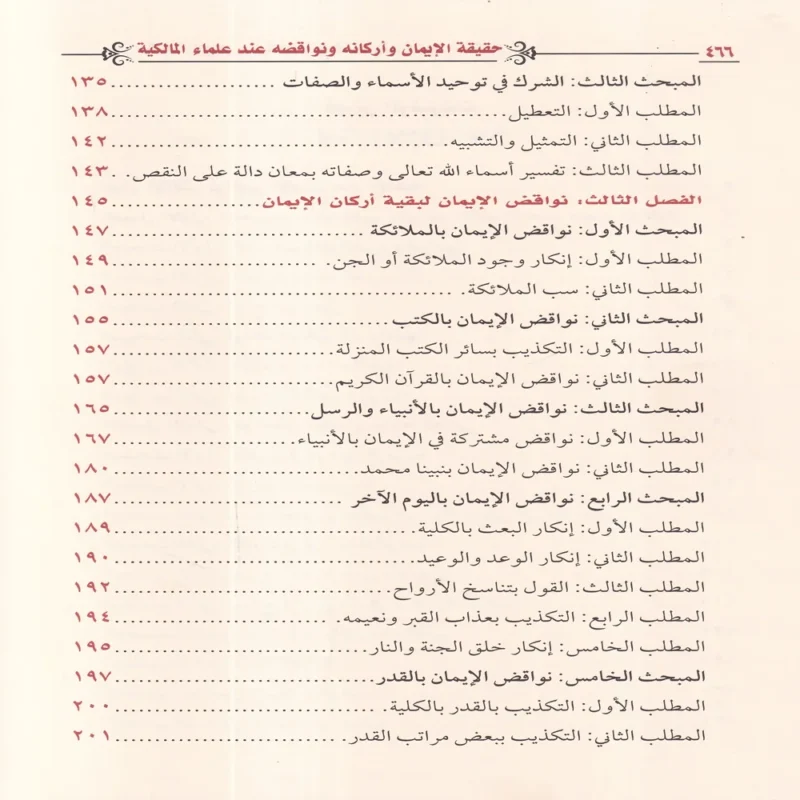 ٤٦٦ حقيقة الإيمان وأركانه ونواقضه عند علماء المالكية
المبحث الثالث: الشرك في توحيد الأسماء والصفات ................... ١٣٥
المطلب الأول: التعطيل............................................ ١٣٨
المطلب الثاني: التمثيل والتشبيه. ................................. ١٤٢
المطلب الثالث: تفسير أسماء الله تعالى وصفاته بمعان دالة على النقص. . ١٤٣
الفصل الثالث: نواقض الإيمان لبقية أركان الإيمان................. ١٤٥
المبحث الأول: نواقض الإيمان بالملائكة ........................... ١٤٧
المطلب الأول: إنكار وجود الملائكة أو الجن. ....................... ١٤٩
المطلب الثاني: سب الملائكة. .................................... ١٥١
المبحث الثاني: نواقض الإيمان بالكتب............................. ١٥٥
المطلب الأول: التكذيب بسائر الكتب المنزلة........................ ١٥٧
المطلب الثاني: نواقض الإيمان بالقرآن الكريم....................... ١٥٧
المبحث الثالث: نواقض الإيمان بالأنبياء والرسل..................... ١٦٥
المطلب الأول: نواقض مشتركة في الإيمان بالأنبياء.................. ١٦٧
المطلب الثاني: نواقض الإيمان بنبينا محمد......................... ١٨٠
المبحث الرابع: نواقض الإيمان باليوم الآخر ....................... ١٨٧
المطلب الأول: إنكار البعث بالكلية............................... ١٨٩
المطلب الثاني: إنكار الوعد والوعيد............................... ١٩٠
المطلب الثالث: القول بتناسخ الأرواح............................. ١٩٢
المطلب الرابع: التكذيب بعذاب القبر ونعيمه. ...................... ١٩٤
المطلب الخامس: إنكار خلق الجنة والنار........................... ١٩٥
المبحث الخامس: نواقض الإيمان بالقدر............................ ١٩٧
المطلب الأول: التكذيب بالقدر بالكلية. ........................... ٢٠٠
المطلب الثاني: التكذيب ببعض مراتب القدر. ....................... ٢٠١